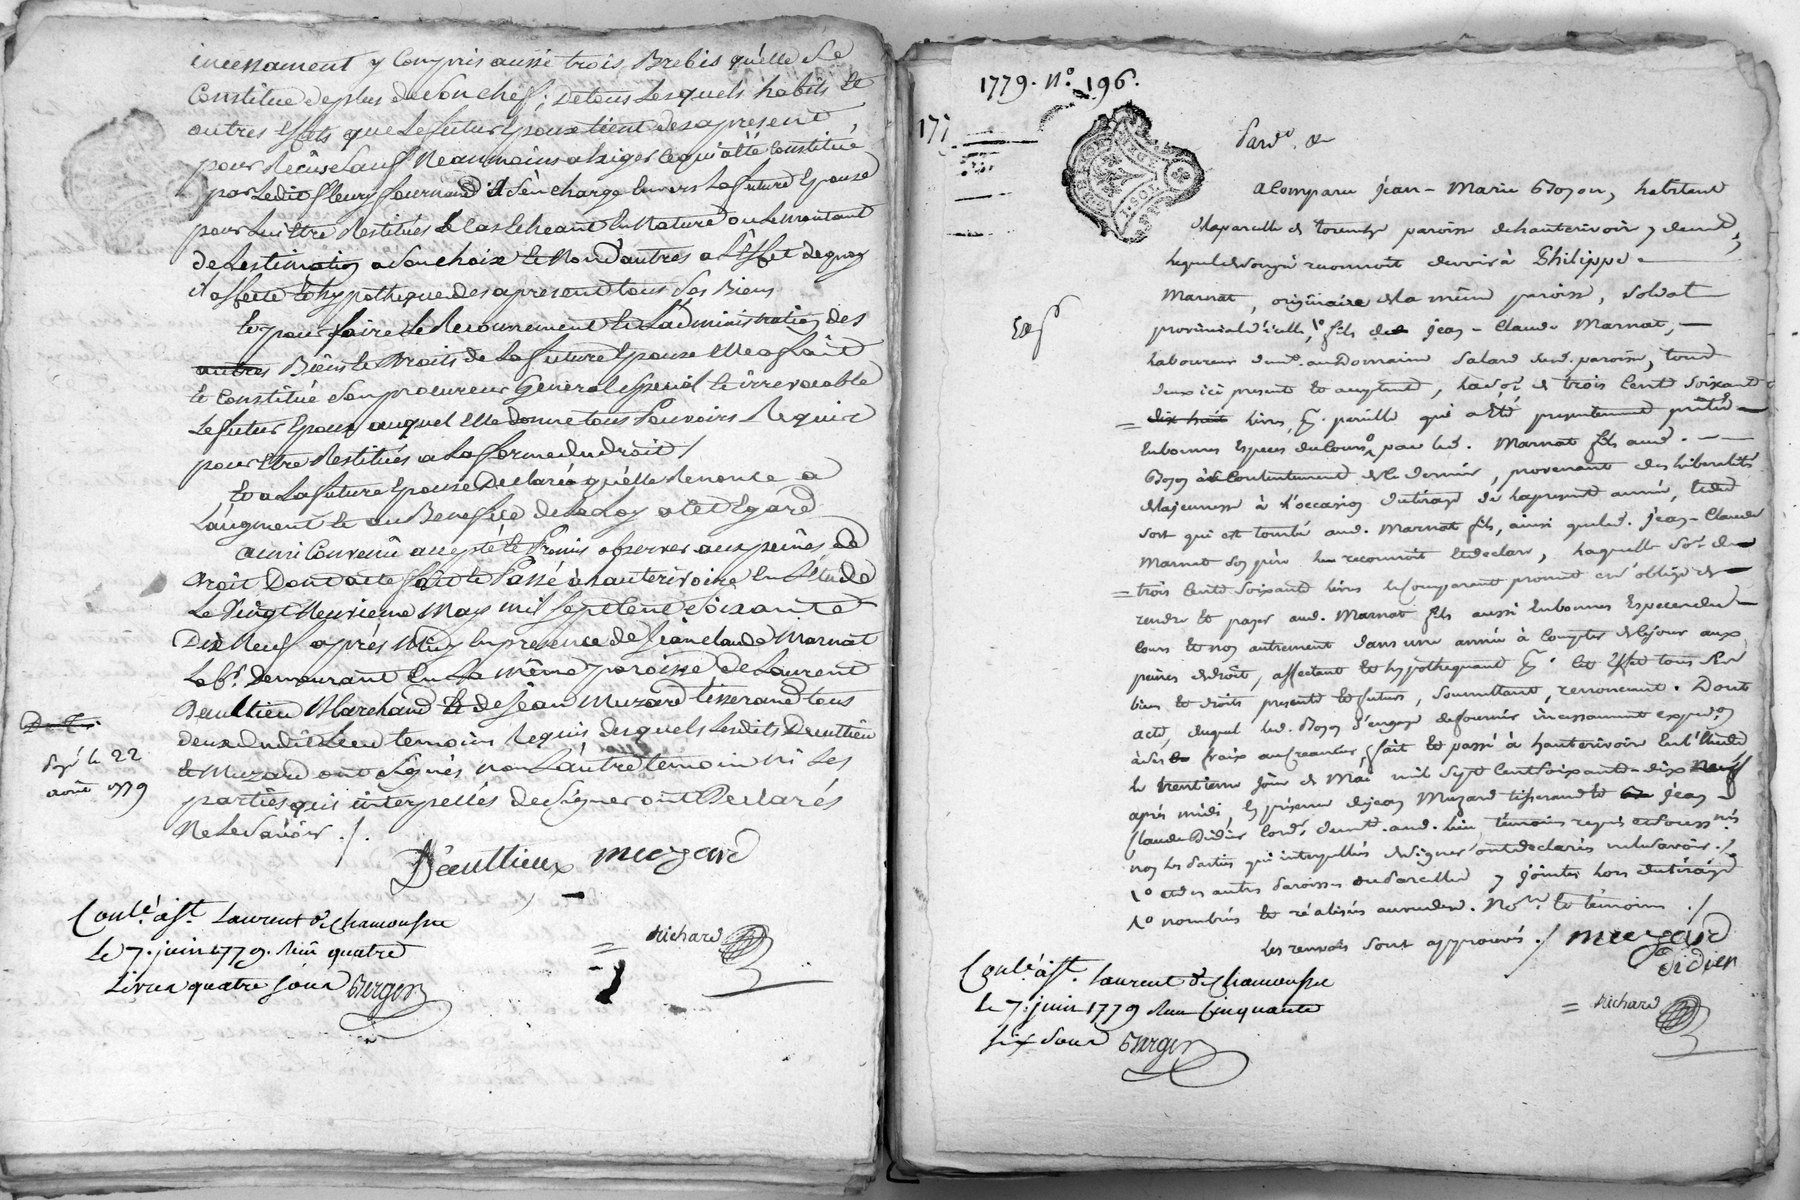 incessament y Compris aussi trois Brebis qu'elle Se
Constitue de plus de Son chef; de tous Lesquels habits Et
autres Effets que Le futur Epoux tient des a present
pour Reçus Sauf Neanmoins a Exiger ce qui a Eté Constitué
par Ledit fleury fournand il S'en charge Envers La future Epouse
pour Lui Etre Restitués Le Cas Echeant En Nature ou Le montant
de L'estimation a Son choix Et Non d'autres a L'Effet de quoy
il affecte Et hypotheque des a present tous Ses Biens
Et pour faire Le Recouvrement Et L'administration des
autres Biens Et Droits de La future Epouse Elle a fait
Et Constitué Son procureur General Special Et irrevocable
Le futur Epoux auquel Elle donne tous Pouvoirs Requis
pour Etre Restitués a La forme du droit /
Et a La future Epouse Declaré qu'elle Renonce a
L'augment Et au Benefice de La Loy a cet Egard
ainsi Convenû accepté Et Promis observer aux peines de
droit Dont acte fait Et Passé à hauterivoire En L'étude
Le Vingt Neuvieme May mil Sept Cent Soixante
Dix Neuf après Midy En presence de Jean claude Marnat
Lab.r demeurant En La même paroisse de Laurent
Decultieu Marchand Et de Jean Muzard tisserand tous
deux dudit Lieu temoins Requis desquels Lesdits Decultieu
Et Muzard ont Signés non L'autre temoin ni Les
parties qui interpellés de Signer ont Declarés
Ne Le Savoir ./.
Expé le 22
août 1779
Decultieux muzard
Conlé à St. Laurent de Chamousset
Le 7. juin 1779. Reçu quatre
Livres quatre sous Berger
richard
1779. N.º 196.
177
Pard.t &
a Comparu jean-Marie Bojon, habitant
de la parcelle de paroisse de hauterivoir y demt,
lequel de son gré reconnoit devoir à Philippe
Marnat, originaire de la même paroisse, Soldat
provincial d'icelle, 1º fils de jean-Claude Marnat,
laboureur demt. au Domaine Salard sud. paroisse, tous
deux ici present et acceptant, la So.e de trois Cent Soixante
dix huit livres, p. pareille qui a Eté presentement prêtée
En bonnes Especes du Cours par led. Marnat fils aud.
Bojon à Contentement de ce dernier, provenant des liberalités
de la jeunesse à l'occasion du tirage de la presente année, et du
Sort qui est tombé aud. Marnat fils, ainsi que led. jean-Claude
Marnat Son père le reconnoit et declare, laquelle So.e de
trois Cent Soixante livres le Comparant promet et s'oblige de
rendre et payer aud. Marnat fils aussi En bonnes Especes du
Cours et non autrement dans une année à Compter de ce jour aux
peines de droit, affectant et hypothequant p. Cet Effet tous Ses
biens et droits presents et futurs, Soumettant, renonçant. Dont
acte, duquel led. Bojon S'engage de fournir incessamment exped.on
à Ses frais au creancier, fait et passé à hauterivoir En l'Etude
le trentieme jour de Mai mil Sept Cent Soixante-dix neuf
après midi, En présence de jean Muzard tisserand et jean
Claude Didier Cord.r demt. aud. lieu, témoins requis et Soussignés
non les Parties qui interpellées de Signer ont declarés ne le Savoir ./.
1º et des autres Paroisses ou Parcelles y jointes lors du tirage
1º nombrés et réalisés au vu des N.re et témoins ./
Les renvois Sont approuvés ./ muzard
Didier
Conlé à St. Laurent de Chamousset
le 7. juin 1779 Reçu Cinquante
six sous Berger
richard